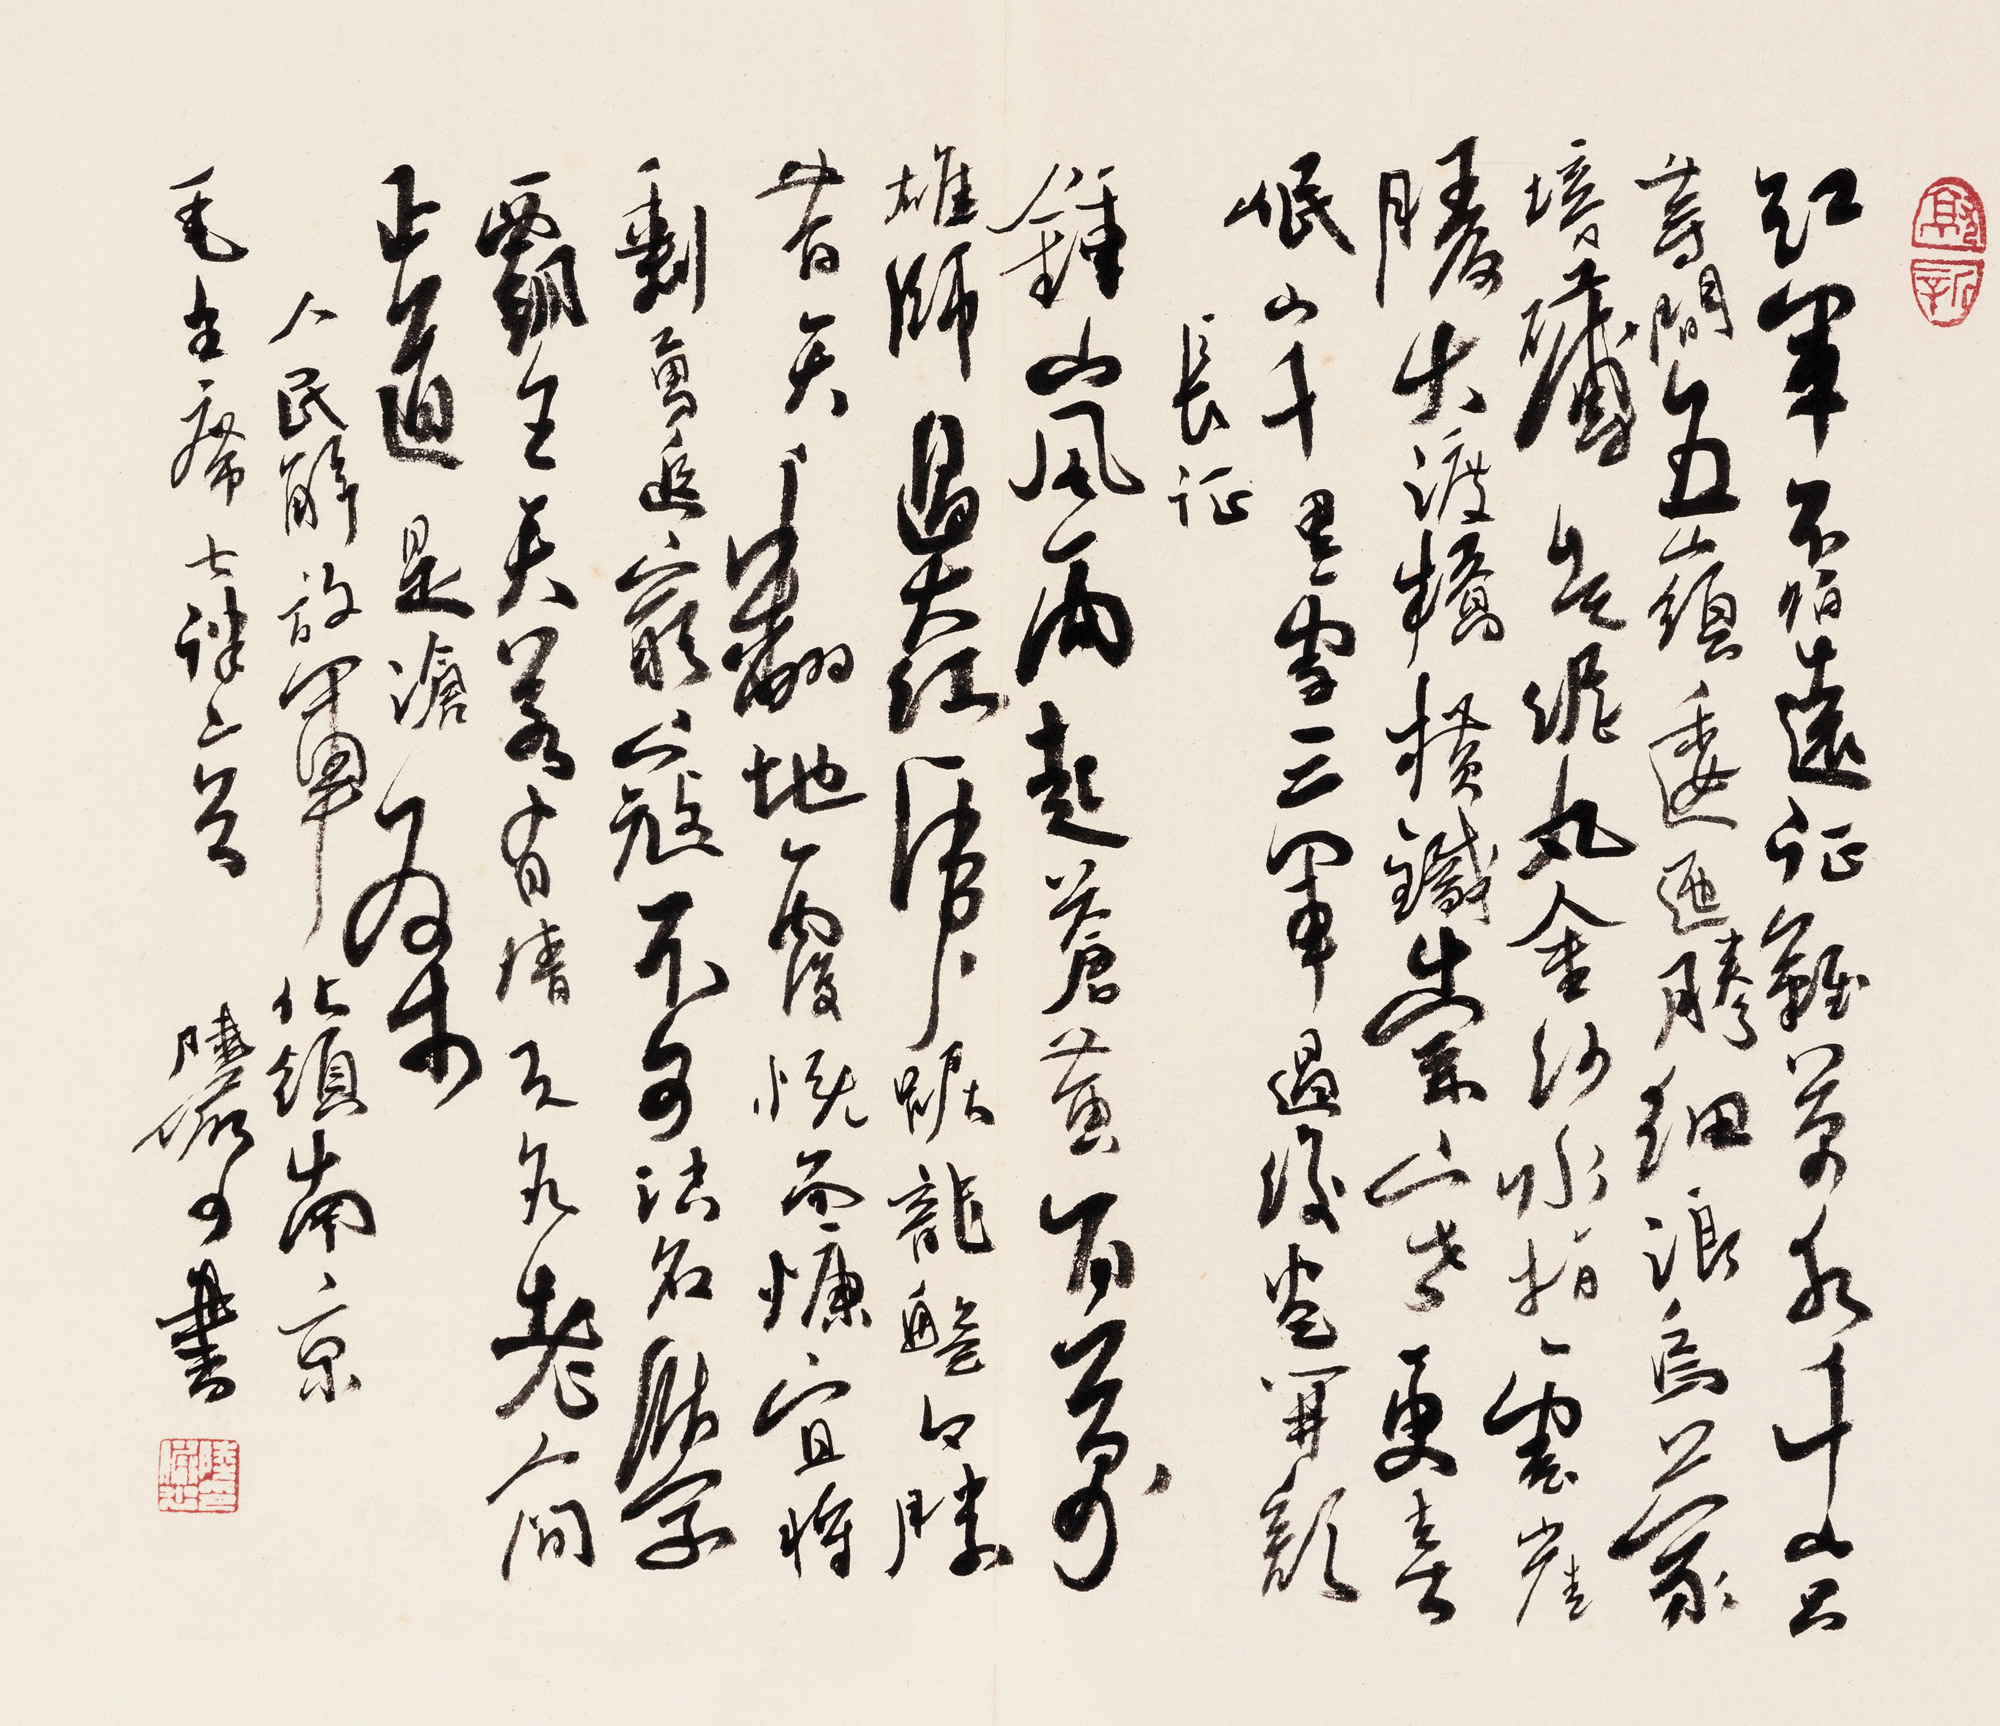 紅軍不怕遠征難萬水千山只
等間五嶺逶迤騰細浪烏蒙
磅礴走泥丸金沙水拍雲崖
暖大渡橋橫鐵索寒更喜
岷山千里雪三軍過後盡開顏
長征
鍾山風雨起蒼黃百萬
雄師過大江虎踞龍盤今勝
昔天翻地覆慨而慷宜將
剩勇追窮寇不可沽名學
霸王天若有情天亦老人間
正道是滄桑
人民解放軍佔領南京
毛主席七律二首 陸儼少書